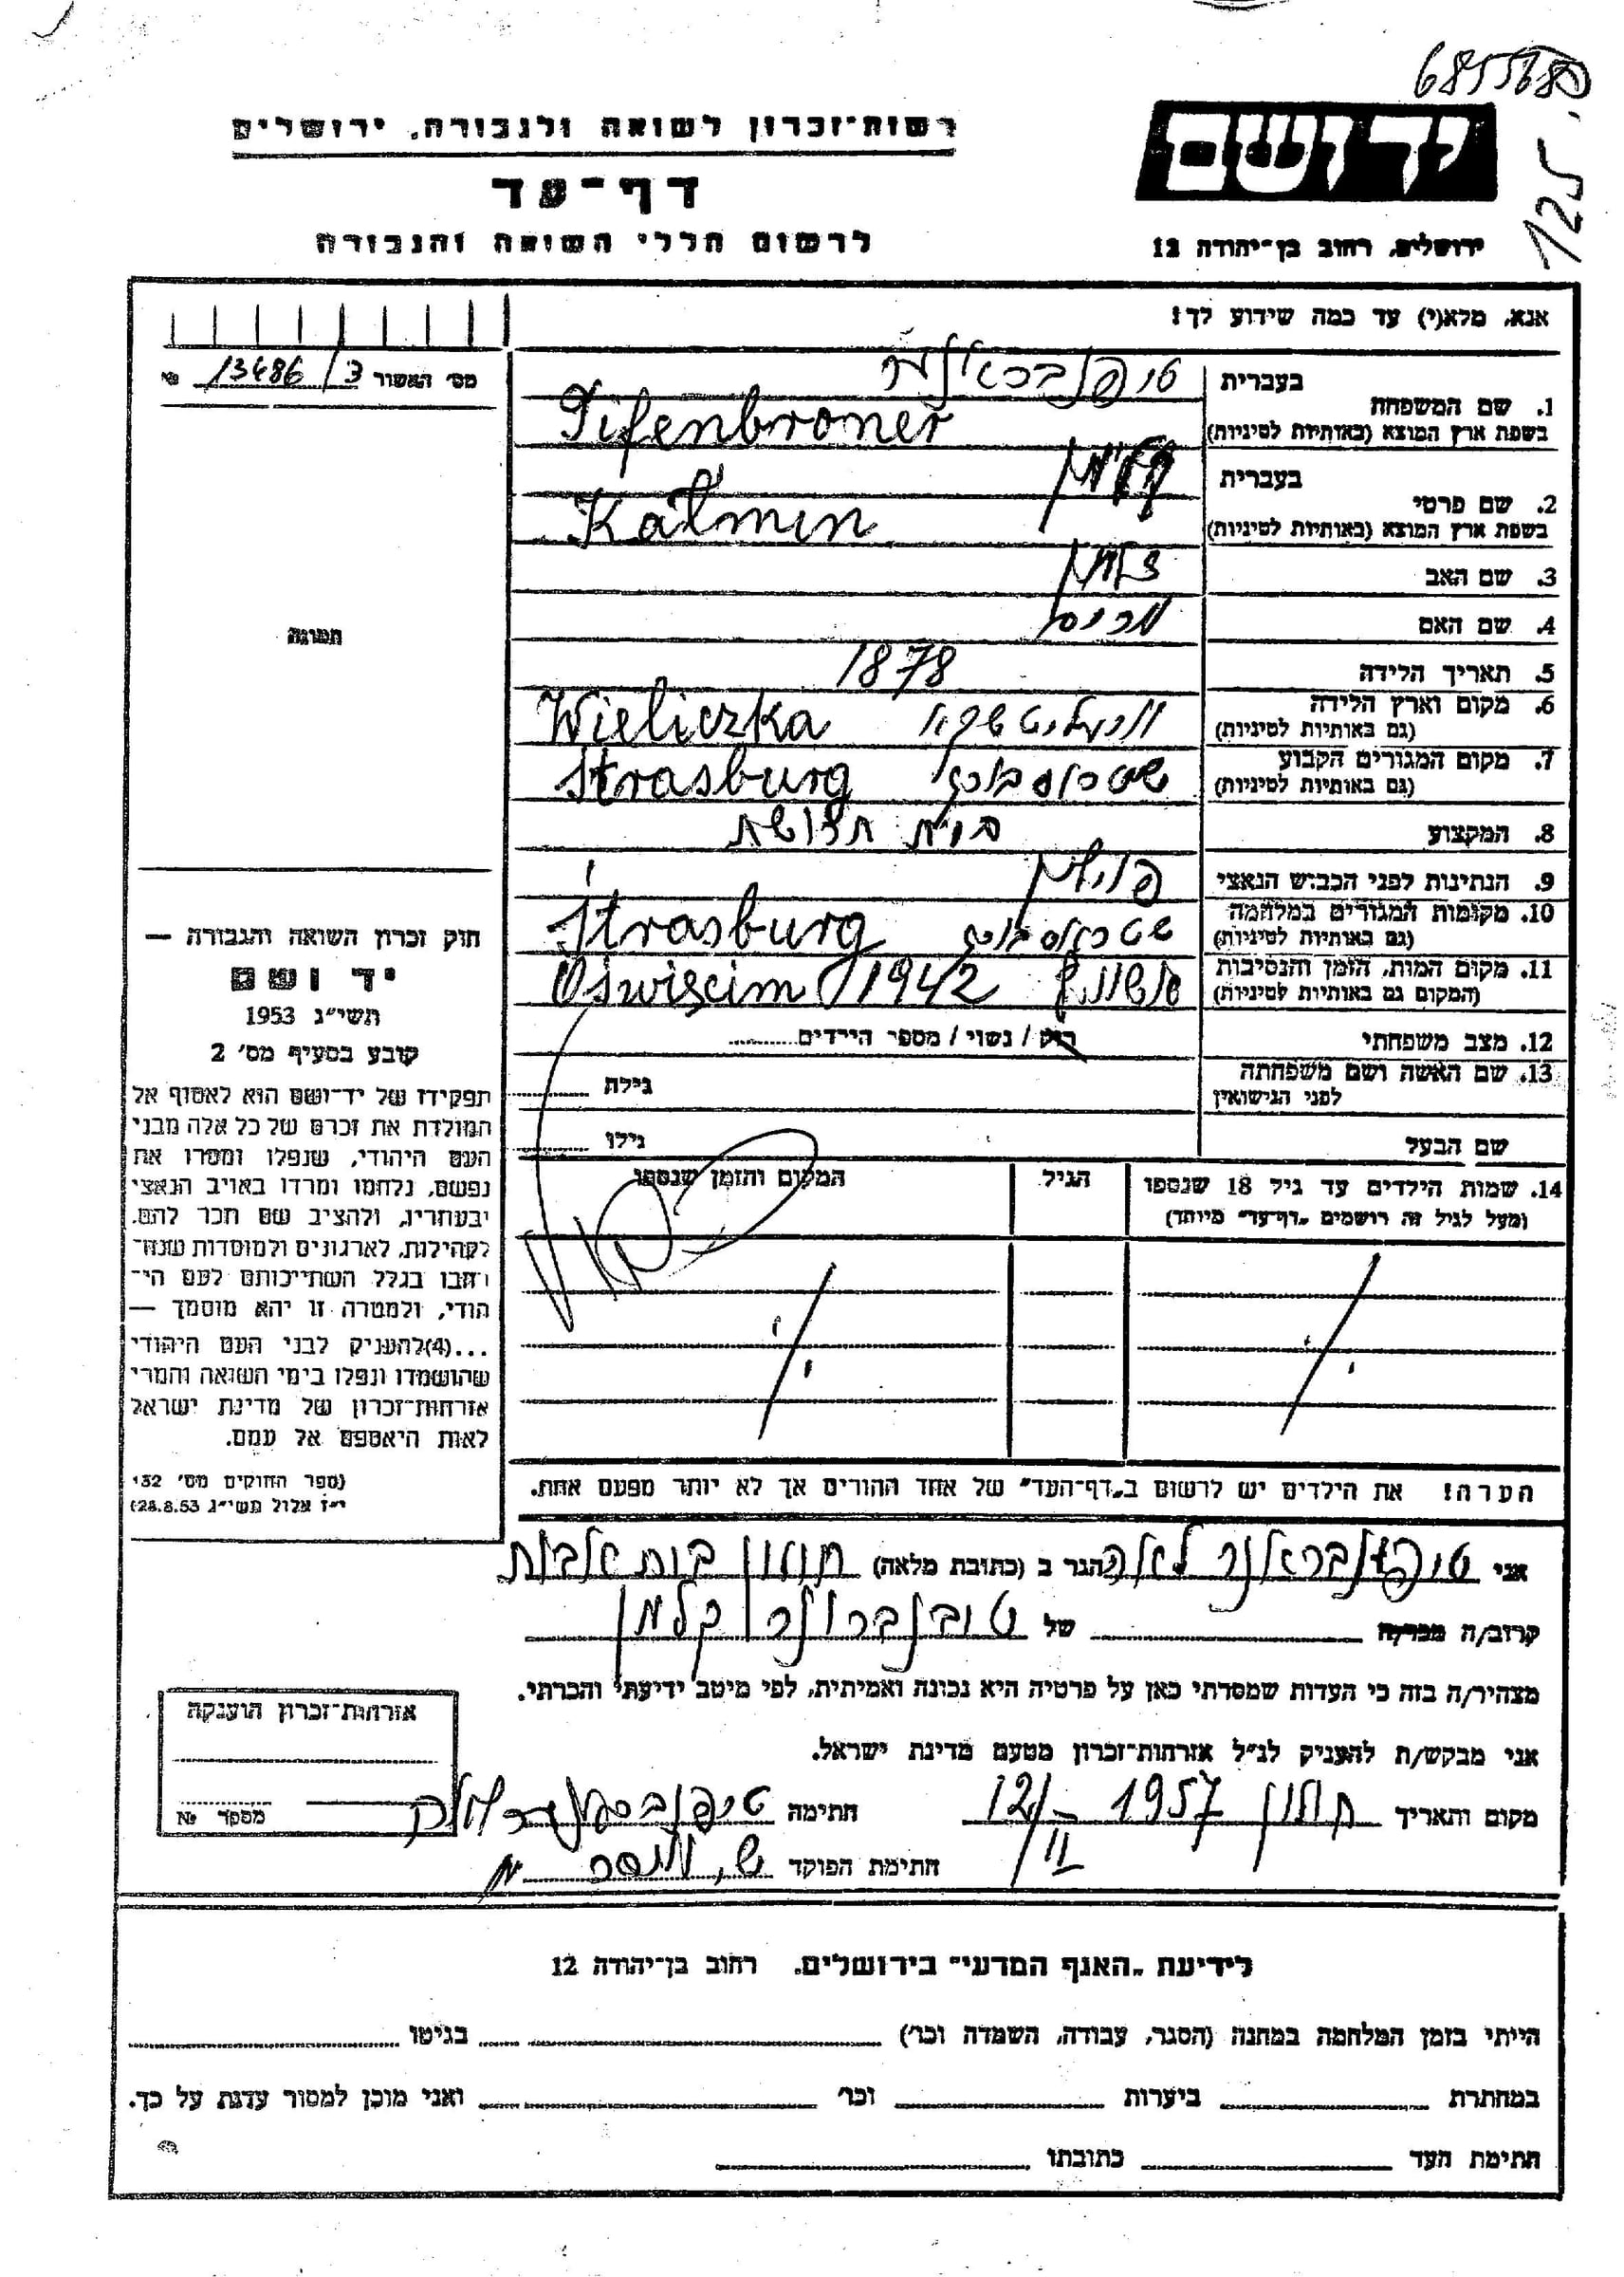 6855680
125
ידושם
ירושלים, רחוב בן־יהודה 12
רשות־זכרון לשואה ולגבורה, ירושלים
דף־עד
לרשום חללי השואה והגבורה
אנא, מלא(י) עד כמה שידוע לך!
מס׳ האשור 13486/3 №
1. שם המשפחה
בעברית
בשפת ארץ המוצא (באותיות לטיניות) Tifenbroner
2. שם פרטי
בעברית קלמן
בשפת ארץ המוצא (באותיות לטיניות) Kalmen
3. שם האב
4. שם האם
5. תאריך הלידה 1878
6. מקום וארץ הלידה
(גם באותיות לטיניות) Wieliczka
7. מקום המגורים הקבוע
(גם באותיות לטיניות) שטרסבורג Strasburg
8. המקצוע בית חרושת
9. הנתינות לפני הכבוש הנאצי פולין
10. מקומות המגורים במלחמה
(גם באותיות לטיניות) שטרסבורג Strasburg
11. מקום המות, הזמן והנסיבות
(המקום גם באותיות לטיניות) Oświęcim 1942
12. מצב משפחתי רוק / נשוי / מספר הילדים
13. שם האשה ושם משפחתה
לפני הנישואין
גילה
שם הבעל
גילו
14. שמות הילדים עד גיל 18 שנספו
(מעל לגיל זה רושמים „דף־עד״ מיוחד)
הגיל
המקום והזמן שנספו
הערה! את הילדים יש לרשום ב„דף־העד״ של אחד ההורים אך לא יותר מפעם אחת.
תמונה
חוק זכרון השואה והגבורה —
יד ושם
תשי״ג 1953
קובע בסעיף מס׳ 2
תפקידו של יד־ושם הוא לאסוף אל
המולדת את זכרם של כל אלה מבני
העם היהודי, שנפלו ומסרו את
נפשם, נלחמו ומרדו באויב הנאצי
ובעוזריו, ולהציב שם וזכר להם,
לקהילות, לארגונים ולמוסדות שנח־
רבו בגלל השתייכותם לעם הי־
הודי, ולמטרה זו יהא מוסמך —
...(4)להעניק לבני העם היהודי
שהושמדו ונפלו בימי השואה והמרי
אזרחות־זכרון של מדינת ישראל
לאות היאספם אל עמם.
(ספר החוקים מס׳ 132
י״ז אלול תשי״ג 28.8.53)
אני הגר ב (כתובת מלאה) חולון בית אבות
קרוב/ה מכר/ה של קלמן
מצהיר/ה בזה כי העדות שמסרתי כאן על פרטיה היא נכונה ואמיתית, לפי מיטב ידיעתי והכרתי.
אני מבקש/ת להעניק לנ״ל אזרחות־זכרון מטעם מדינת ישראל.
מקום ותאריך חולון 1957 12/II חתימה
חתימת הפוקד
אזרחות־זכרון הוענקה
מספר №
לידיעת „האגף המדעי״ בירושלים. רחוב בן־יהודה 12
הייתי בזמן המלחמה במחנה (הסגר, עבודה, השמדה וכר׳) בגיטו
במחתרת ביערות וכר׳ ואני מוכן למסור עדות על כך.
חתימת העד כתובתו